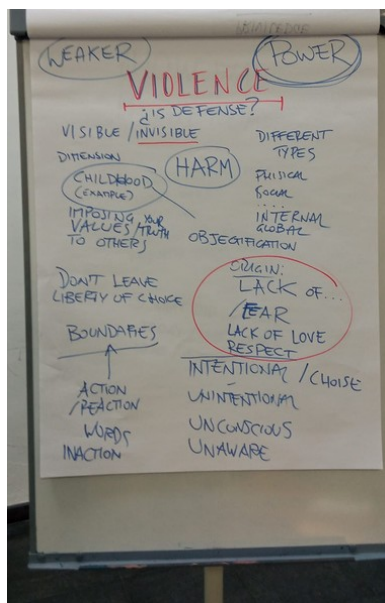 WEAKER
POWER
VIOLENCE
¿IS DEFENSE?
VISIBLE / INVISIBLE
DIMENSION
CHILDHOOD
(EXAMPLE)
IMPOSING YOUR
VALUES / TRUTH
TO OTHERS
HARM
DIFFERENT
TYPES
PHISICAL
SOCIAL
....
INTERNAL
GLOBAL
OBJEGTIFICATION
DON'T LEAVE
LIBERTY OF CHOICE
BOUNDARIES
ACTION
/REACTION
WORDS
INACTION
ORIGIN:
LACK OF...
/FEAR
LACK OF LOVE
RESPECT
INTENTIONAL / CHOISE
UNINTENTIONAL
UNCONSCIOUS
UNAWARE